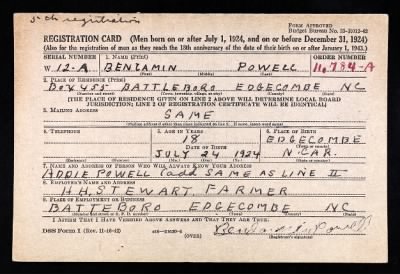 5th registration
Form Approved
Budget Bureau No. 33-R012-42
REGISTRATION CARD (Men born on or after July 1, 1924, and on or before December 31, 1924)
(Also for the registration of men as they reach the 18th anniversary of the date of their birth on or after January 1, 1943.)
SERIAL NUMBER 1. NAME (Print) ORDER NUMBER
W 12-A BENJAMIN POWELL 11,784-A
(First) (Middle) (Last)
2. PLACE OF RESIDENCE (Print)
BOX 455 BATTLEBORO EDGECOMBE NC
(Number and street) (Town, township, village, or city) (County) (State)
[THE PLACE OF RESIDENCE GIVEN ON LINE 2 ABOVE WILL DETERMINE LOCAL BOARD
JURISDICTION; LINE 2 OF REGISTRATION CERTIFICATE WILL BE IDENTICAL]
3. MAILING ADDRESS
SAME
[Mailing address if other than place indicated on line 2. If same, insert word same]
4. TELEPHONE 5. AGE IN YEARS 6. PLACE OF BIRTH
18 EDGECOMBE
DATE OF BIRTH (Town or county)
JULY 24 1924 N CAR.
(Exchange) (Number) (Mo.) (Day) (Yr.) (State or country)
7. NAME AND ADDRESS OF PERSON WHO WILL ALWAYS KNOW YOUR ADDRESS
ADDIE POWELL (add SAME AS LINE II
8. EMPLOYER'S NAME AND ADDRESS
H.H. STEWART FARMER
9. PLACE OF EMPLOYMENT OR BUSINESS
BATTEBORO EDGECOMBE NC
(Number and street or R. F. D. number) (Town) (County) (State)
I AFFIRM THAT I HAVE VERIFIED ABOVE ANSWERS AND THAT THEY ARE TRUE.
DSS Form 1 (Rev. 11-16-42) (OVER) Benjamin Powell
(Registrant's signature)